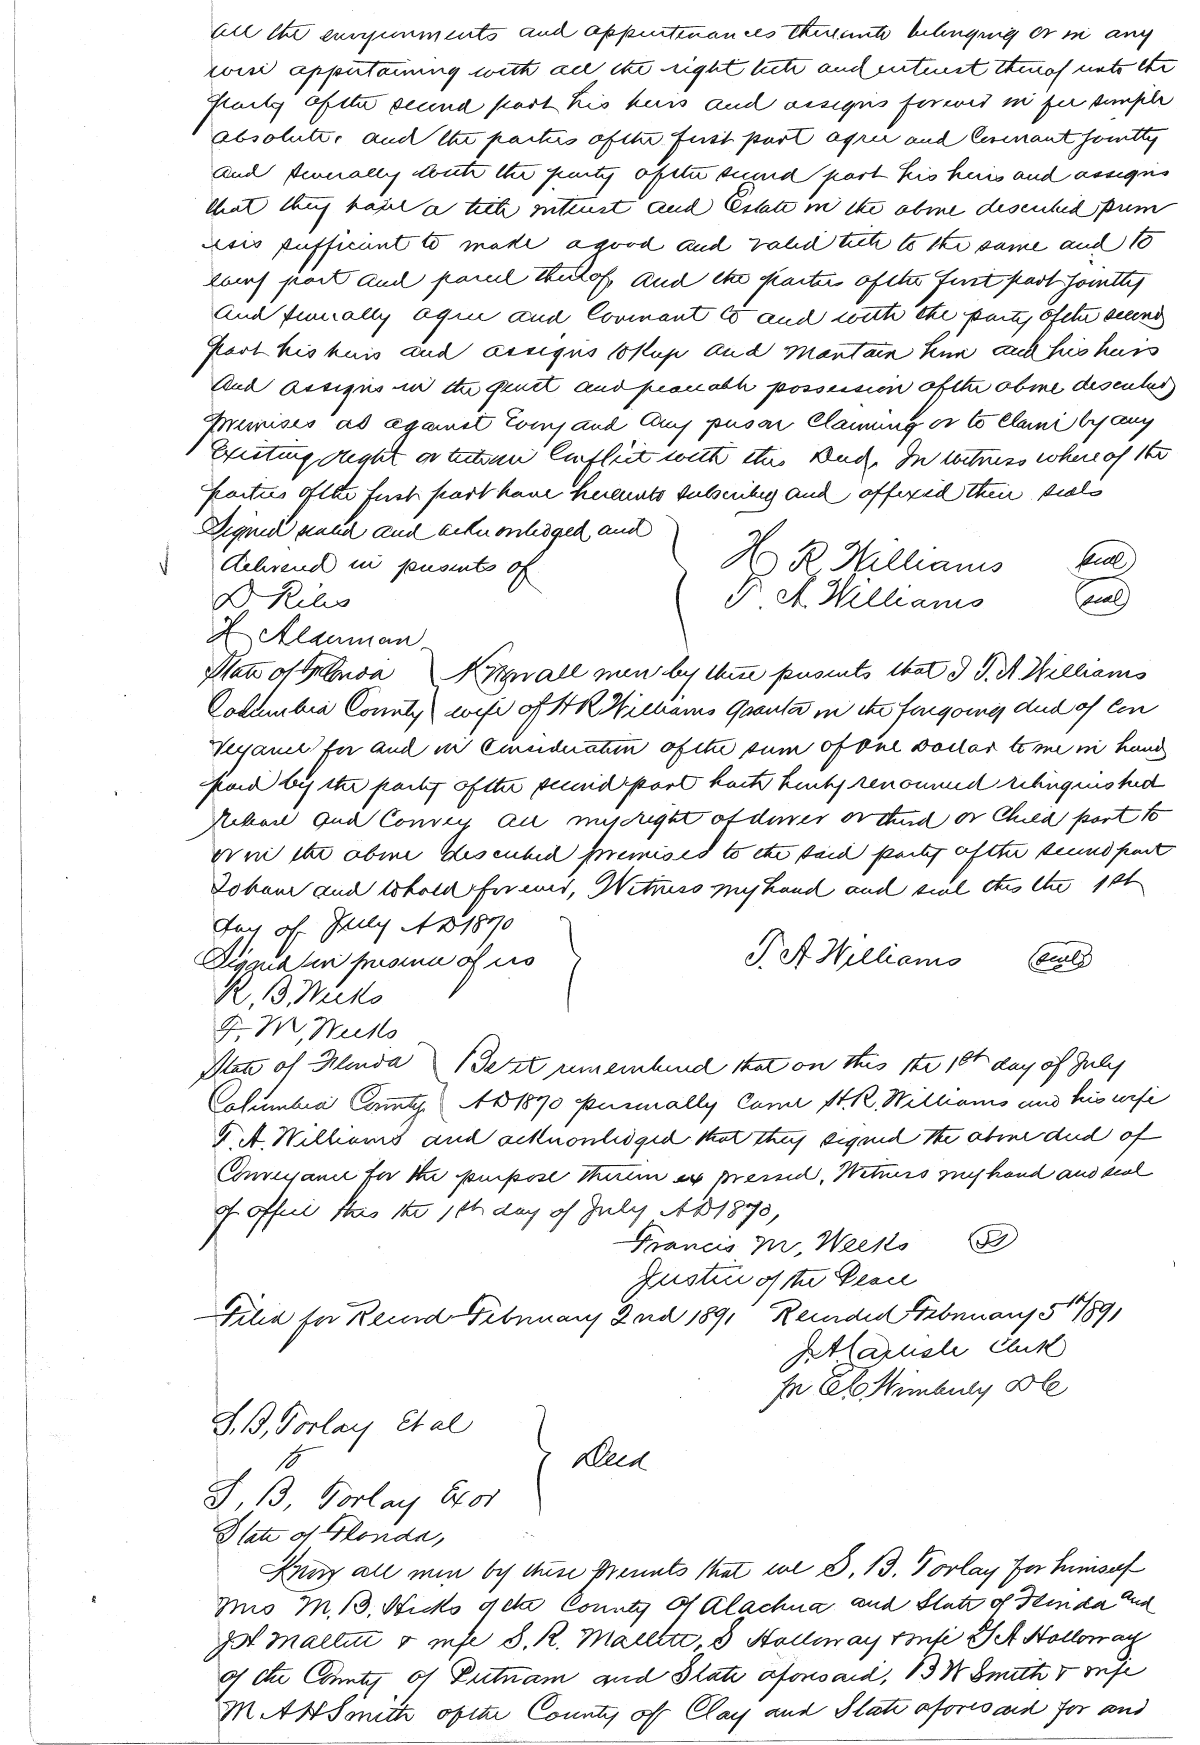 all the envyronments and appurtenances thereunto belonging or in any
wise appertaining with all the right title and interest thereof unto the
party of the second part his heirs and assigns forever in fee simple
absolute. and the parties of the first part agree and Covenant Jointly
and severally with the party of the second part his heirs and assigns
that they have a title interest and Estate in the above described prem
ises sufficient to make a good and valid title to the same and to
every part and parcel thereof, and the parties of the first part jointly
and severally agree and Covenant to and with the party of the second
part his heirs and assigns to Keep and Mantain him and his heirs
and assigns in the quiet and peacable possession of the above described
premises as against Every and Any person Claiming or to Claim by any
Existing right or title in Conflict with this Deed. In witness whereof the
parties of the first part have hereunto subscribed and affixed their seals
Signed sealed and acknowledged and
delivered in presents of
H R Williams (seal)
D Riles
T. A. Williams (seal)
H Alderman
State of Florida } Know all men by these presents that I T. A Williams
Columbia County } wife of H R Williams Grantor in the foregoing deed of Con
veyance for and in Consideration of the sum of one Dollar to me in hand
paid by the party of the second part hath hereby renounced relinquished
release and Convey all my right of dower or third or Child part to
or in the above described premises to the said party of the second part
To have and to hold forever, Witness my hand and seal this the 1st
day of July A D 1870
Signed in presence of us
T. A Williams (seal)
R. B. Weeks
F. M, Weeks
State of Florida } Be it remembered that on this the 1st day of July
Columbia County } A D 1870 personally Came H. R. Williams and his wife
T. A. Williams and acknowledged that they signed the above deed of
Conveyance for the purpose therein ex pressed, Witness my hand and seal
of office this the 1st day of July A D 1870,
Francis M, Weeks
Justice of the Peace
Filed for Record February 2nd 1891 Recorded February 5th 1891
J. A Carlisle Clerk
per E C Wimberly D C
S. B, Torlay Et al
to
} Deed
S. B, Torlay Exor
State of Florida,
Know all men by these presents that we S. B. Torlay for himself
Mrs M. B. Hicks of the County of Alachua and State of Florida and
J H Mallett & wife S. R. Mallett, S Holloway & wife S A Holloway
of the County of Putnam and State aforesaid, B W Smith & wife
M A H Smith of the County of Clay and State aforesaid for and